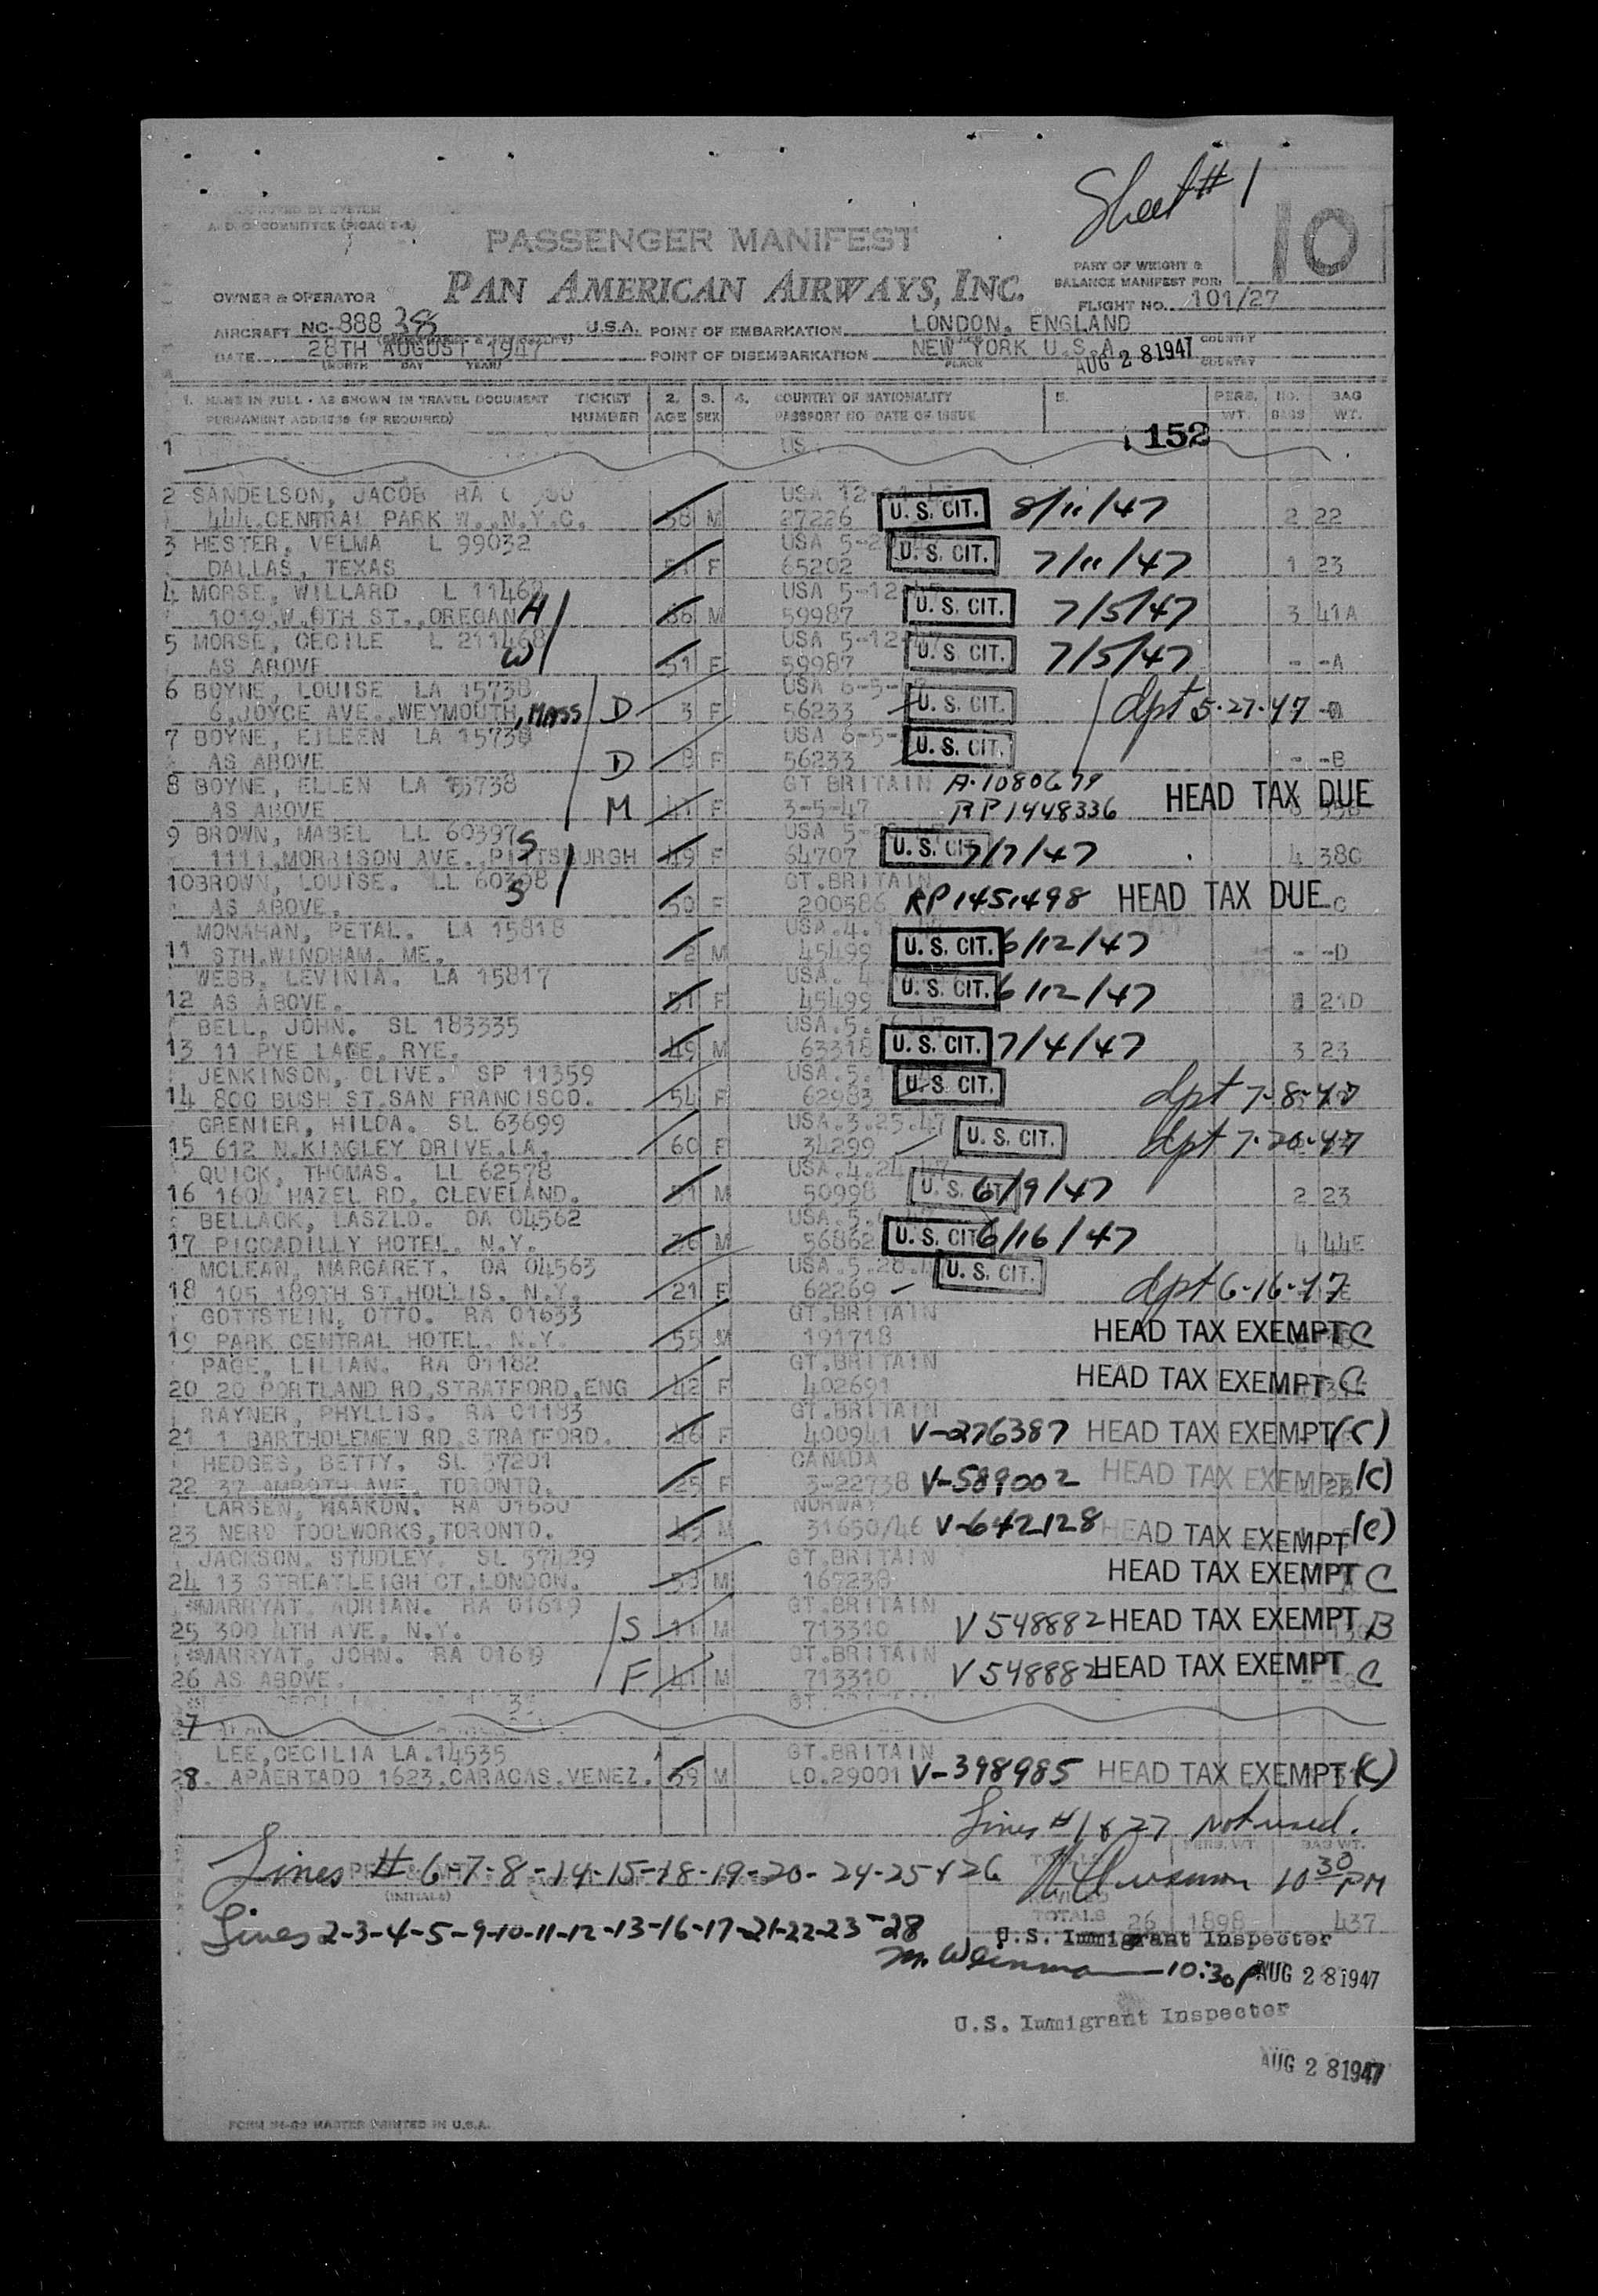 Sheet # 1
10
A. D. C. COMMITTEE (PICAO
PASSENGER MANIFEST
PART OF WEIGHT &
BALANCE MANIFEST FOR:
OWNER & OPERATOR PAN AMERICAN AIRWAYS, INC.
FLIGHT NO. 101/27
AIRCRAFT NC-88838 U.S.A. POINT OF EMBARKATION LONDON, ENGLAND COUNTRY
DATE 28TH AUGUST 1947 POINT OF DISEMBARKATION NEW YORK U.S.A. AUG 28 1947 COUNTRY
(MONTH DAY YEAR) PLACE
1. NAME IN FULL - AS SHOWN IN TRAVEL DOCUMENT TICKET 2. 3. 4. COUNTRY OF NATIONALITY 5. PERS. NO. BAG
PERMANENT ADDRESS (IF REQUIRED) NUMBER AGE SEX PASSPORT NO DATE OF ISSUE WT. BAGS WT.
1 US 152
2 SANDELSON, JACOB RA USA 12
444 CENTRAL PARK W., N.Y.C. 58 M 27226 U. S. CIT. 8/11/47 2 22
3 HESTER, VELMA L 99032 USA 5-2
DALLAS, TEXAS 51 F 65202 U. S. CIT. 7/11/47 1 23
4 MORSE, WILLARD L 11468 USA 5-12
1019 W. 8TH ST., OREGAN H M 59987 U. S. CIT. 7/5/47 3 41A
5 MORSE, CECILE L 211468 USA 5-12-47
AS ABOVE W 51 F 59987 U. S. CIT. 7/5/47 - -A
6 BOYNE, LOUISE LA 15738 USA 6-5-
6, JOYCE AVE., WEYMOUTH, MASS D 3 F 56233 U. S. CIT. dpt 5-27-47
7 BOYNE, EILEEN LA 15738 USA 6-5-
AS ABOVE D F 56233 U. S. CIT. - -B
8 BOYNE, ELLEN LA 15738 GT BRITAIN A-1080679
AS ABOVE M 41 F 3-5-47 RP 1448336 HEAD TAX DUE
9 BROWN, MABEL LL 60397 S USA 5-2
1111 MORRISON AVE., PITTSBURGH 49 F 64707 U. S. CIT. 7/7/47 4 38C
10 BROWN, LOUISE. LL 60398 GT.BRITAIN
AS ABOVE. S 50 F 200586 RP 1451498 HEAD TAX DUE C
MONAHAN, PETAL. LA 15818 USA.4.
11 STH.WINDHAM. ME. 2 M 45499 U. S. CIT. 6/12/47 - -D
WEBB, LEVINIA. LA 15817 USA. 4
12 AS ABOVE. 51 F 45499 U. S. CIT. 6/12/47 21D
BELL, JOHN. SL 183335 USA.5.
13 11 PYE LANE, RYE. 49 M 63318 U. S. CIT. 7/4/47 3 23
JENKINSON, OLIVE. SP 11359 USA.5.
14 800 BUSH ST.SAN FRANCISCO. 54 F 62983 U. S. CIT. dpt 7-8-47
GRENIER, HILDA. SL 63699 USA.3.25.47
15 612 N.KINGLEY DRIVE,LA. 60 F 34299 U. S. CIT. dpt 7-20-47
QUICK, THOMAS. LL 62578 USA.4.24.47
16 1604 HAZEL RD, CLEVELAND. 51 M 50998 U. S. CIT 6/9/47 2 23
BELLACK, LASZLO. OA 04562 USA.5.
17 PICCADILLY HOTEL, N.Y. 36 M 56862 U. S. CIT 6/16/47 4 44E
MCLEAN, MARGARET. OA 04563 USA.5.28.47
18 105 189TH ST,HOLLIS, N.Y. 21 F 62269 U. S. CIT. dpt 6-16-47
GOTTSTEIN, OTTO. RA 01633 GT.BRITAIN
19 PARK CENTRAL HOTEL, N.Y. 55 M 191718 HEAD TAX EXEMPT C
PAGE, LILIAN. RA 01182 GT.BRITAIN
20 20 PORTLAND RD,STRATFORD,ENG 42 F 402691 HEAD TAX EXEMPT C
RAYNER, PHYLLIS. RA 01183 GT.BRITAIN
21 1 BARTHOLEMEW RD.STRATFORD. 46 F 400941 V-276387 HEAD TAX EXEMPT (C)
HEDGES, BETTY. SL 37201 CANADA
22 37 AMROTH AVE, TORONTO. 25 F 3-22738 V-589002 HEAD TAX EXEMPT (C)
LARSEN, HAAKON. RA 01680 NORWAY
23 NERO TOOLWORKS,TORONTO. 43 M 31650/46 V-642128 HEAD TAX EXEMPT (C)
JACKSON, STUDLEY. SL 37429 GT.BRITAIN
24 13 STREATLEIGH CT,LONDON. 53 M 167238 HEAD TAX EXEMPT C
*MARRYAT, ADRIAN. RA 01619 GT.BRITAIN
25 300 4TH AVE, N.Y. S 11 M 713310 V 548882 HEAD TAX EXEMPT B
*MARRYAT, JOHN. RA 01619 GT.BRITAIN
26 AS ABOVE. F 41 M 713310 V 548882 HEAD TAX EXEMPT C
27
LEE,CECILIA LA.14535 GT.BRITAIN
28. APAERTADO 1623,CARACAS,VENEZ. 39 M LO.29001 V-398985 HEAD TAX EXEMPT (C)
Lines # 1 & 27 not used.
Lines # 6-7-8-14-15-18-19-20-24-25 & 26 10 30 PM
(INITIALS)
TOTALS 26 1898 437
Lines 2-3-4-5-9-10-11-12-13-16-17-21-22-23-28 U.S. Immigrant Inspector
M. Weinman 10:30 P AUG 28 1947
U.S. Immigrant Inspector
AUG 28 1947
MASTER PRINTED IN U.S.A.